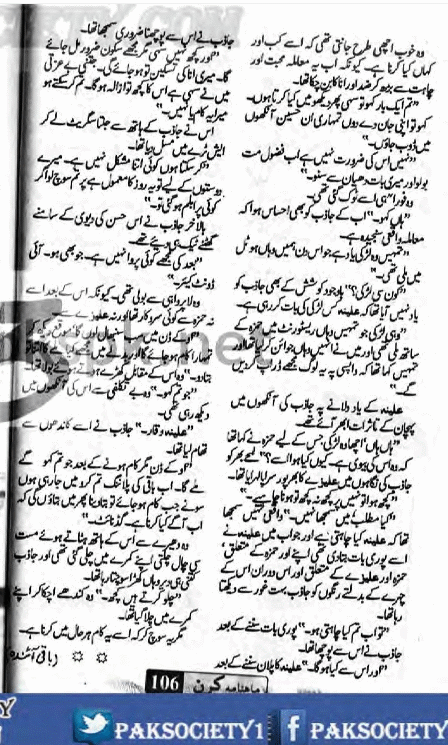 وہ خوب اچھی طرح جانتی تھی کہ اسے کب اور
کہاں کیا کرنا ہے۔ کیونکہ اب یہ معاملہ محبت اور
چاہت سے بڑھ کر ضد اور انا کا بن چکا تھا۔
"تم ایک بار کہو تو سہی پھر دیکھو میں کیا کرتا ہوں۔
کہو تو اپنی جان دے دوں تمہاری ان حسین آنکھوں
میں ڈوب جاؤں۔"
"نہیں اس کی ضرورت نہیں ہے اب فضول مت
بولو اور میری بات دھیان سے سنو۔"
وہ فوراً اسے ٹوک گئی تھی۔
"ہاں کہو۔" اب کے جاذب کو بھی احساس ہوا کہ
معاملہ واقعی سنجیدہ ہے۔
"تمہیں وہ لڑکی یاد ہے جو اس دن ہمیں وہاں ہوٹل
میں ملی تھی۔"
"کون سی لڑکی؟" باوجود کوشش کے بھی جاذب کو
یاد نہیں آیا تھا کہ علینہ کس لڑکی کی بات کر رہی ہے۔
"وہی لڑکی جو تمہیں وہاں ریسٹورنٹ میں حمزہ کے
ساتھ ملی تھی اور میں نے انہیں وہاں جوائن کر لیا تھا اور
تمہیں کہا تھا کہ واپسی پہ یہ لوگ مجھے ڈراپ کر دیں
گے۔"
علینہ کے یاد دلانے پہ جاذب کی آنکھوں میں
پہچان کے تاثرات ابھر آئے تھے۔
"ہاں ہاں اچھا وہ لڑکی جس کے لیے حمزہ نے کہا تھا
کہ وہ اس کی بیوی ہے۔ کیوں کیا ہوا اسے؟" لمحے بھر کو
جاذب کی نگاہوں میں علیزے کا بھرپور سراپا لہرایا تھا۔
"کچھ ہوا تو نہیں پر کچھ نہ کچھ تو ہونا چاہیے۔"
"کیا مطلب میں سمجھا نہیں۔" واقعی نہیں سمجھا
تھا کہ علینہ کیا چاہتی ہے اور جواب میں علینہ نے
اسے پوری بات بتا دی تھی اپنے اور حمزہ کے متعلق،
حمزہ اور علیزے کے متعلق اور اس دوران اس کے
چہرے کے بدلتے رنگوں کو جاذب بہت غور سے دیکھتا
رہا تھا۔
"تو اب تم کیا چاہتی ہو۔" پوری بات سننے کے بعد
جاذب نے اس سے پوچھا تھا۔
"اور اس سے کیا ہو گا۔" علینہ کا پلان سننے کے بعد
جاذب نے اس سے پوچھنا ضروری سمجھا تھا۔
"اور کچھ نہیں سہی مگر مجھے سکون ضرور مل جائے
گا۔ میری انا کی تسکین تو ہو جائے گی۔ جتنی بے عزتی
میں نے سہی ہے اس کا کچھ تو ازالہ ہو گا۔ تم کر سکتے ہو
میرا یہ کام یا نہیں۔"
اس نے جاذب کے ہاتھ سے جلتا سگریٹ لے کر
ایش ٹرے میں مسل دیا تھا۔
"کر سکتا ہوں کوئی اتنا مشکل نہیں ہے۔ میرے
دوستوں کے لیے تو یہ روز کا معمول ہے پر تم سوچ لو اگر
کوئی پرابلم ہو گئی تو۔"
بالآخر جاذب نے اس حسن کی دیوی کے سامنے
گھٹنے ٹیک ہی دیے تھے۔
"بعد کی مجھے کوئی پروا نہیں ہے۔ جو بھی ہو۔ آئی
ڈونٹ کیئر۔"
وہ لاپرواہی سے بولی تھی۔ کیونکہ اس کے بعد اسے
نہ حمزہ سے کوئی سروکار تھا اور نہ علیزے سے۔
کے دن میں سب سنبھال لوں گا
تمہارا کام ہو جائے گا اور بدلے میں مجھے کیا ملے گا
بتا دو۔" وہ اس کے مقابل کھڑے ہوتے ہوئے بولا تھا۔
"جو تم کہو۔" وہ بے تکلفی سے اس کی آنکھوں میں
دیکھ رہی تھی۔
"علینہ وقار۔" جاذب نے اسے کاندھوں سے
تھام لیا تھا۔
"اوکے ڈن مگر کام ہونے کے بعد جو تم کہو گے
ملے گا۔ اب باقی کی پلاننگ تم کرو میں جا رہی ہوں
سونے جب کام ہو جائے تو بتا دینا پھر میں بتاؤں گی کہ
اب آگے کیا کرنا ہے۔ گڈ نائٹ۔"
وہ دھیرے سے اس کے ہاتھ ہٹاتے ہوئے مست
سی چال چلتی اپنے کمرے میں چلی گئی تھی اور جاذب
کتنی ہی دیر وہاں کھڑا سوچتا رہا تھا۔
"چلو کرتے ہیں کچھ۔" وہ کندھے اچکا کر اپنے
کمرے میں چلا گیا تھا۔
مگر یہ سوچ کر کہ اسے یہ کام ہر حال میں کرنا ہے۔
(باقی آئندہ)
ماہنامہ کرن 106
PAKSOCIETY1
PAKSOCIETY